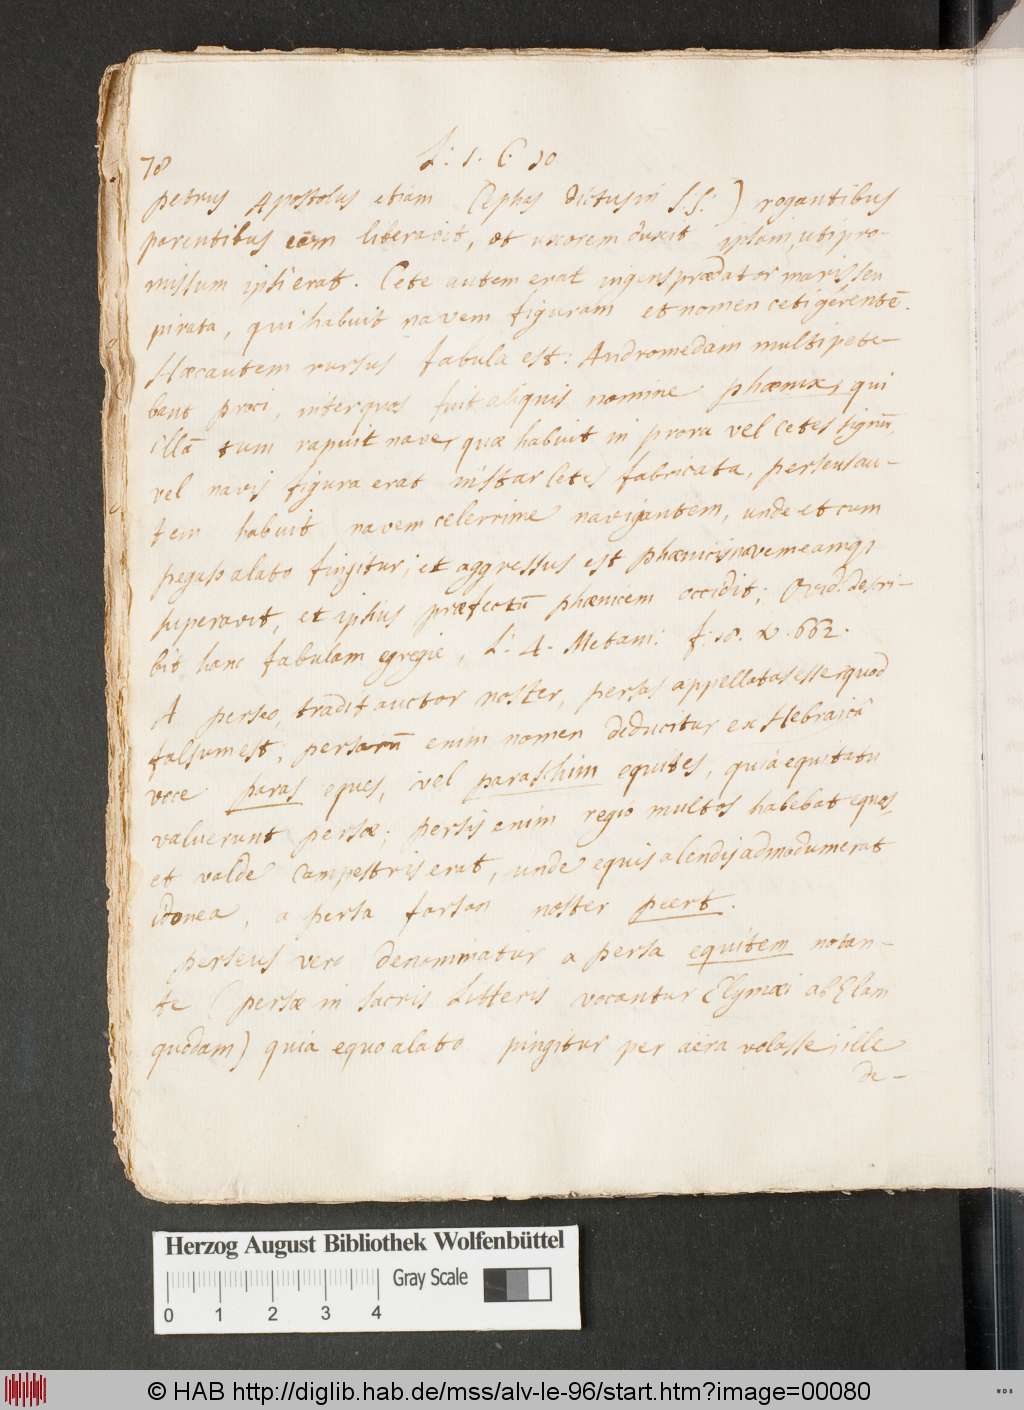 78
L: 1. C. 10
petrus Apostolus etiam Cephas dictus in S.S.) rogantibus
parentibus eam liberavit, et uxorem duxit ipsam, uti pro-
missum ipsi erat. Cete autem erat ingens prædator maris seu
pirata, qui habuit navem figuram et nomen ceti gerentē.
Hæc autem rursus fabula est: Andromedam multi pete-
bant proci, inter quos fuit aliquis nomine phœnix, qui
illā tum rapuit nave, quæ habuit in prora vel Cetes signū,
vel navis figura erat instar Cetes fabricata, perseus au-
tem habuit navem celerrime navigantem, unde et cum
pegaso alato fingitur; et aggressus est phœnicis navem eamq;
superavit, et ipsius præfectū phœnicem occidit; Ovid: descri-
bit hanc fabulam egregie, L: 4. Metam: f: 18. v. 662.
A perseo, tradit auctor noster, persas appellatas esse, quod
falsum est; persarū enim nomen deducitur ex Hebraica
voce paras eques, vel paraschim equites, quia equitatu
valuerunt persæ; persis enim regio multos habebat equos,
et valde campestris erat, unde equis alendis admodum erat
idonea, a persa forsan noster peert.
perseus vero denominatur a persa equitem notan-
te (persæ in sacris Litteris vocantur Elymæi ab Elam
quodam) quia equo alato pingitur per aëra volasse; ille
de-
Herzog August Bibliothek Wolfenbüttel
Gray Scale
0 1 2 3 4
© HAB http://diglib.hab.de/mss/alv-le-96/start.htm?image=00080